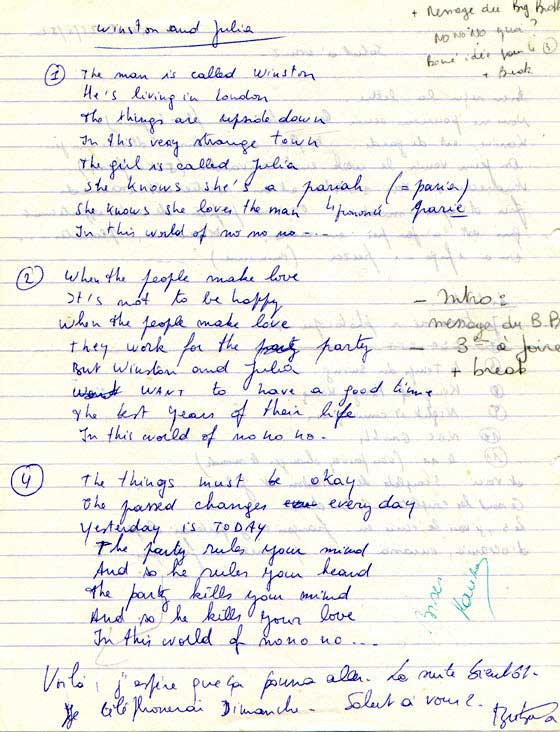 Winston and Julia
+ Message du Big Broth
NO NO NO quoi ?
Bonne idée pour le 3
+ Break
1 The man is called Winston
He's living in London
The things are upside down
In this very strange town
The girl is called Julia
She knows she's a pariah (= paria)
She knows she loves the man
In this world of no no no ....
2 When the people make love
It's not to be happy
When the people make love
They work for the party party
But Winston and Julia
Want WANT to have a good time
The best years of their life
In this world of no no no.
- Intro :
message du B.B
- 3 à faire
+ break
4 The things must be okay
The passed changes every day
Yesterday is TODAY
The party rules your mind
And so he rules your heard
The party kills your mind
And so he kills your love
In this world of no no no ....
Voilà, j'espère que ça pourra aller. La suite bientôt.
Je téléphonerai Dimanche. Salut à vous 2.